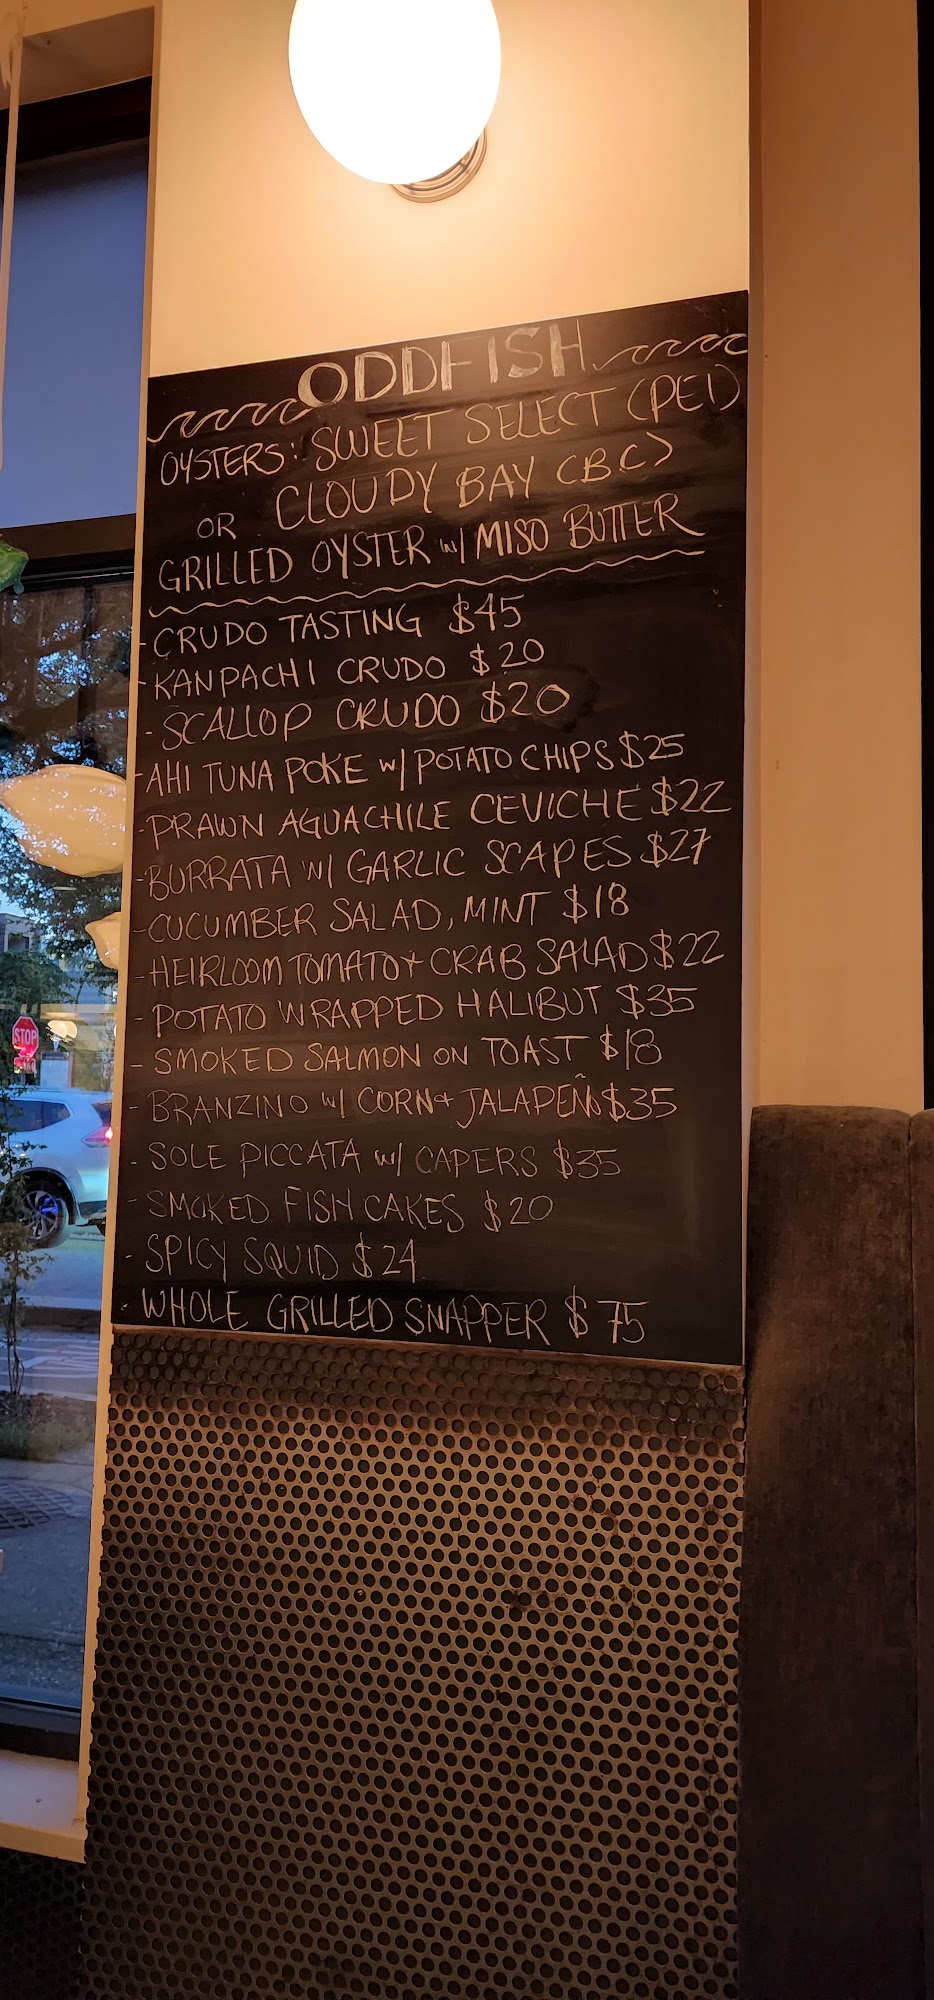 ODDFISH
OYSTERS: SWEET SELECT (PEI)
OR CLOUDY BAY (BC)
GRILLED OYSTER w/ MISO BUTTER
- CRUDO TASTING $45
- KANPACHI CRUDO $20
- SCALLOP CRUDO $20
- AHI TUNA POKE w/ POTATO CHIPS $25
- PRAWN AGUACHILE CEVICHE $22
- BURRATA W/ GARLIC SCAPES $27
- CUCUMBER SALAD, MINT $18
- HEIRLOOM TOMATO + CRAB SALAD $22
- POTATO WRAPPED HALIBUT $35
- SMOKED SALMON ON TOAST $18
- BRANZINO w/ CORN + JALAPEÑO $35
- SOLE PICCATA w/ CAPERS $35
- SMOKED FISH CAKES $20
- SPICY SQUID $24
- WHOLE GRILLED SNAPPER $75
STOP